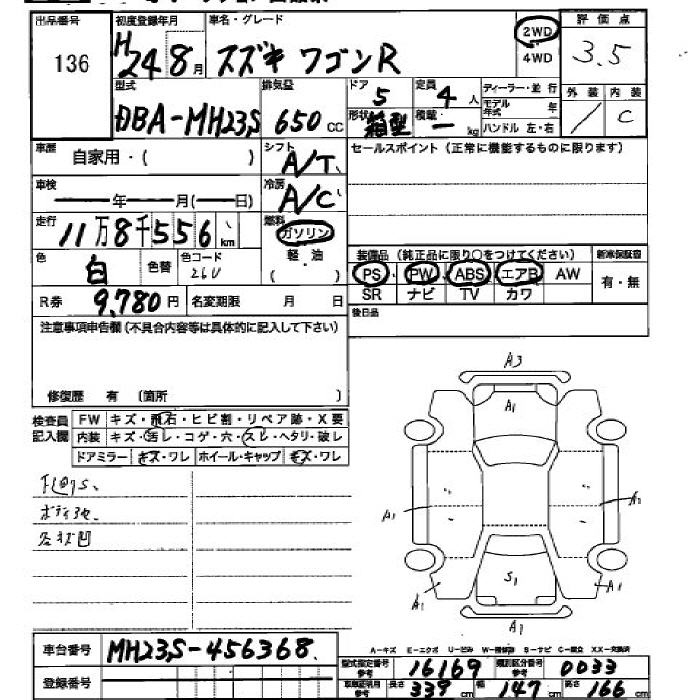 出品番号
136
初度登録年月
H24 8月
車名・グレード
スズキ ワゴンR
2WD
4WD
評価点
3.5
型式
DBA-MH23S
排気量
650 cc
ドア
5
形状
箱型
定員
4人
積載
ー kg
ディーラー・並行
モデル年式 年
ハンドル 左・右
外装
/
内装
C
車歴
自家用・( )
シフト
A/T
セールスポイント(正常に機能するものに限ります)
車検
年 月( 日)
冷房
A/C
走行
11万8千556 km
燃料
ガソリン
軽・油
( )
色
白
色替
色コード
26U
装備品(純正品に限り○をつけてください)
新車保証書
PS PW ABS エアB AW
SR ナビ TV カワ
有・無
R券
9,780円
名変期限 月 日
後日品
注意事項申告欄(不具合内容等は具体的に記入して下さい)
修復歴 有 〔箇所 〕
検査員記入欄
FW キズ・飛石・ヒビ割・リペア跡・X要
内装 キズ・汚レ・コゲ・穴・スレ・ヘタリ・破レ
ドアミラー キズ・ワレ ホイール・キャップ キズ・ワレ
A3
A1
A1
A1
S1
A1
A1
A1
車台番号
MH23S-456368
登録番号
型式指定番号 参考
16169
類別区分番号 参考
0033
長さ 339 cm
幅 147 cm
高さ 166 cm